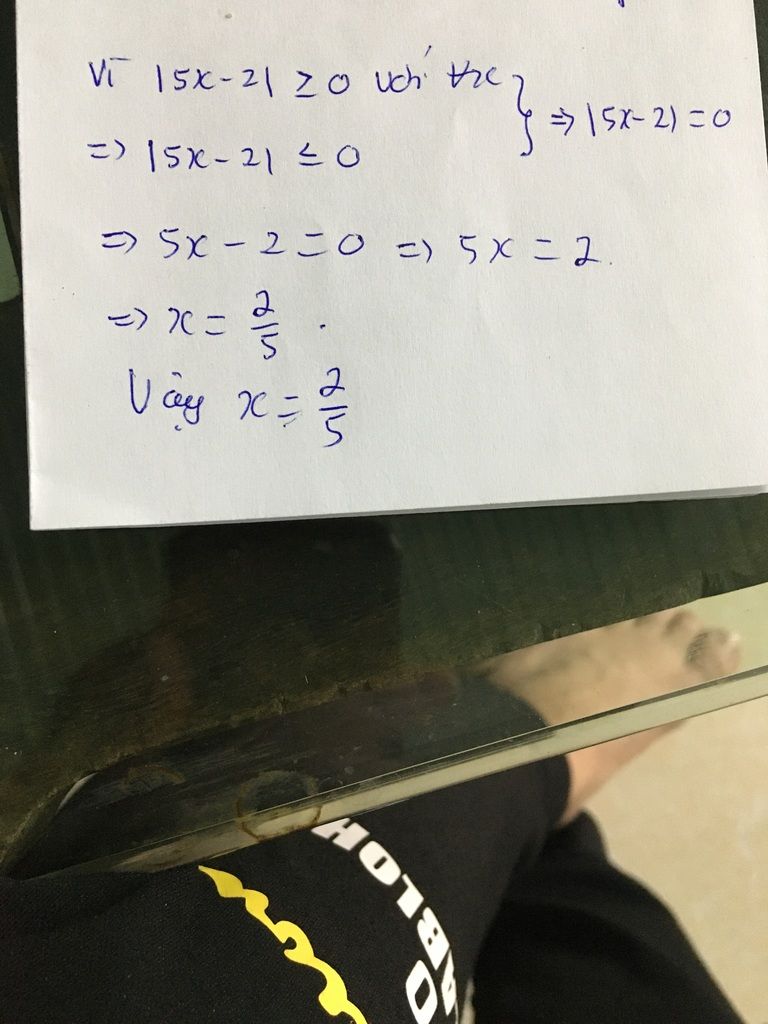 Vì |5x-2| ≥ 0 với ∀x
=> |5x-2| ≤ 0
} => |5x-2| = 0
=> 5x - 2 = 0 => 5x = 2.
=> x = 2/5 .
Vậy x = 2/5